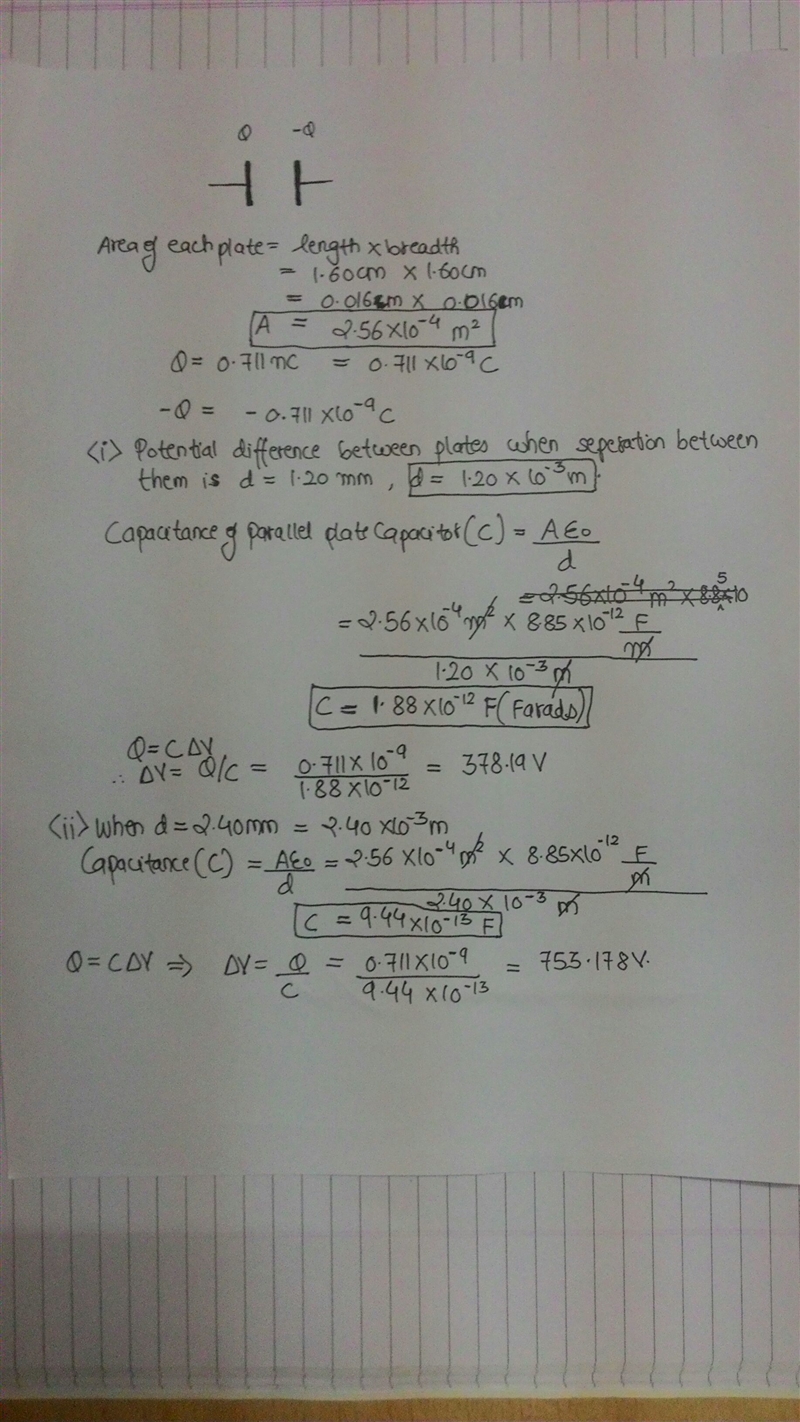 Q -Q
Area of each plate = length × breadth
= 1.60cm × 1.60cm
= 0.016m × 0.016m
A = 2.56 × 10⁻⁴ m²
Q = 0.711 nC = 0.711 × 10⁻⁹ C
-Q = -0.711 × 10⁻⁹ C
<i> Potential difference between plates when seperation between
them is d = 1.20 mm, d = 1.20 × 10⁻³ m.
Capacitance of parallel plate Capacitor (C) = Aε₀/d
= 2.56×10⁻⁴ m² × 8.85×10
= 2.56 × 10⁻⁴ m² × 8.85 × 10⁻¹² F/m
1.20 × 10⁻³ m
C = 1.88 × 10⁻¹² F (Farads)
Q = CΔV
∴ ΔV = Q/C = 0.711 × 10⁻⁹ / 1.88 × 10⁻¹² = 378.19 V
<ii> When d = 2.40mm = 2.40 × 10⁻³ m
Capacitance (C) = Aε₀/d = 2.56 × 10⁻⁴ m² × 8.85×10⁻¹² F/m
2.40 × 10⁻³ m
C = 9.44 × 10⁻¹³ F
Q = CΔV ⇒ ΔV = Q/C = 0.711 × 10⁻⁹ / 9.44 × 10⁻¹³ = 753.178 V.